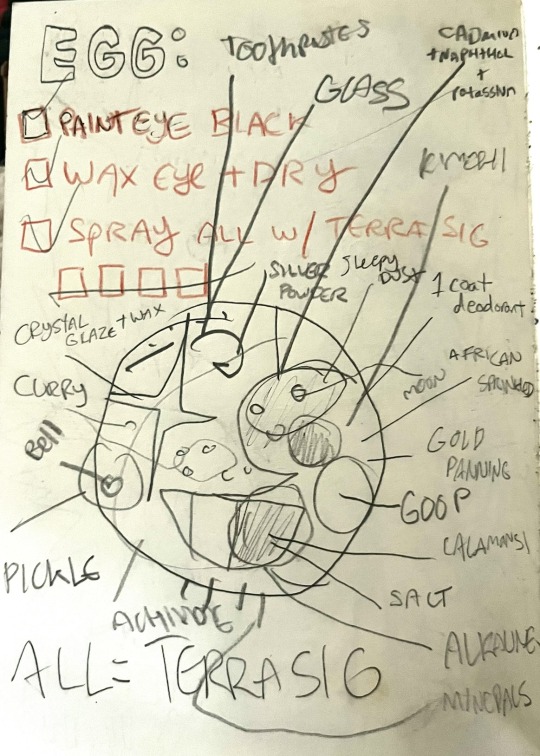 EGG:
TOOTHPASTES
CADMIUM
+ NAPHTHOL
+
POTASSIUM
GLASS
PAINT EYE BLACK
KIMCHI
WAX EYE + DRY
SPRAY ALL W/ TERRA SIG
SILVER
POWDER
SLEEPY
DUST
1 coat
deodorant
CRYSTAL
GLAZE + WAX
AFRICAN
MOON
CURRY
Bell
GOLD
PANNING
GOOP
CALAMANSI
PICKLE
SALT
ACHIOTE
ALKALINE
MINERALS
ALL = TERRA SIG